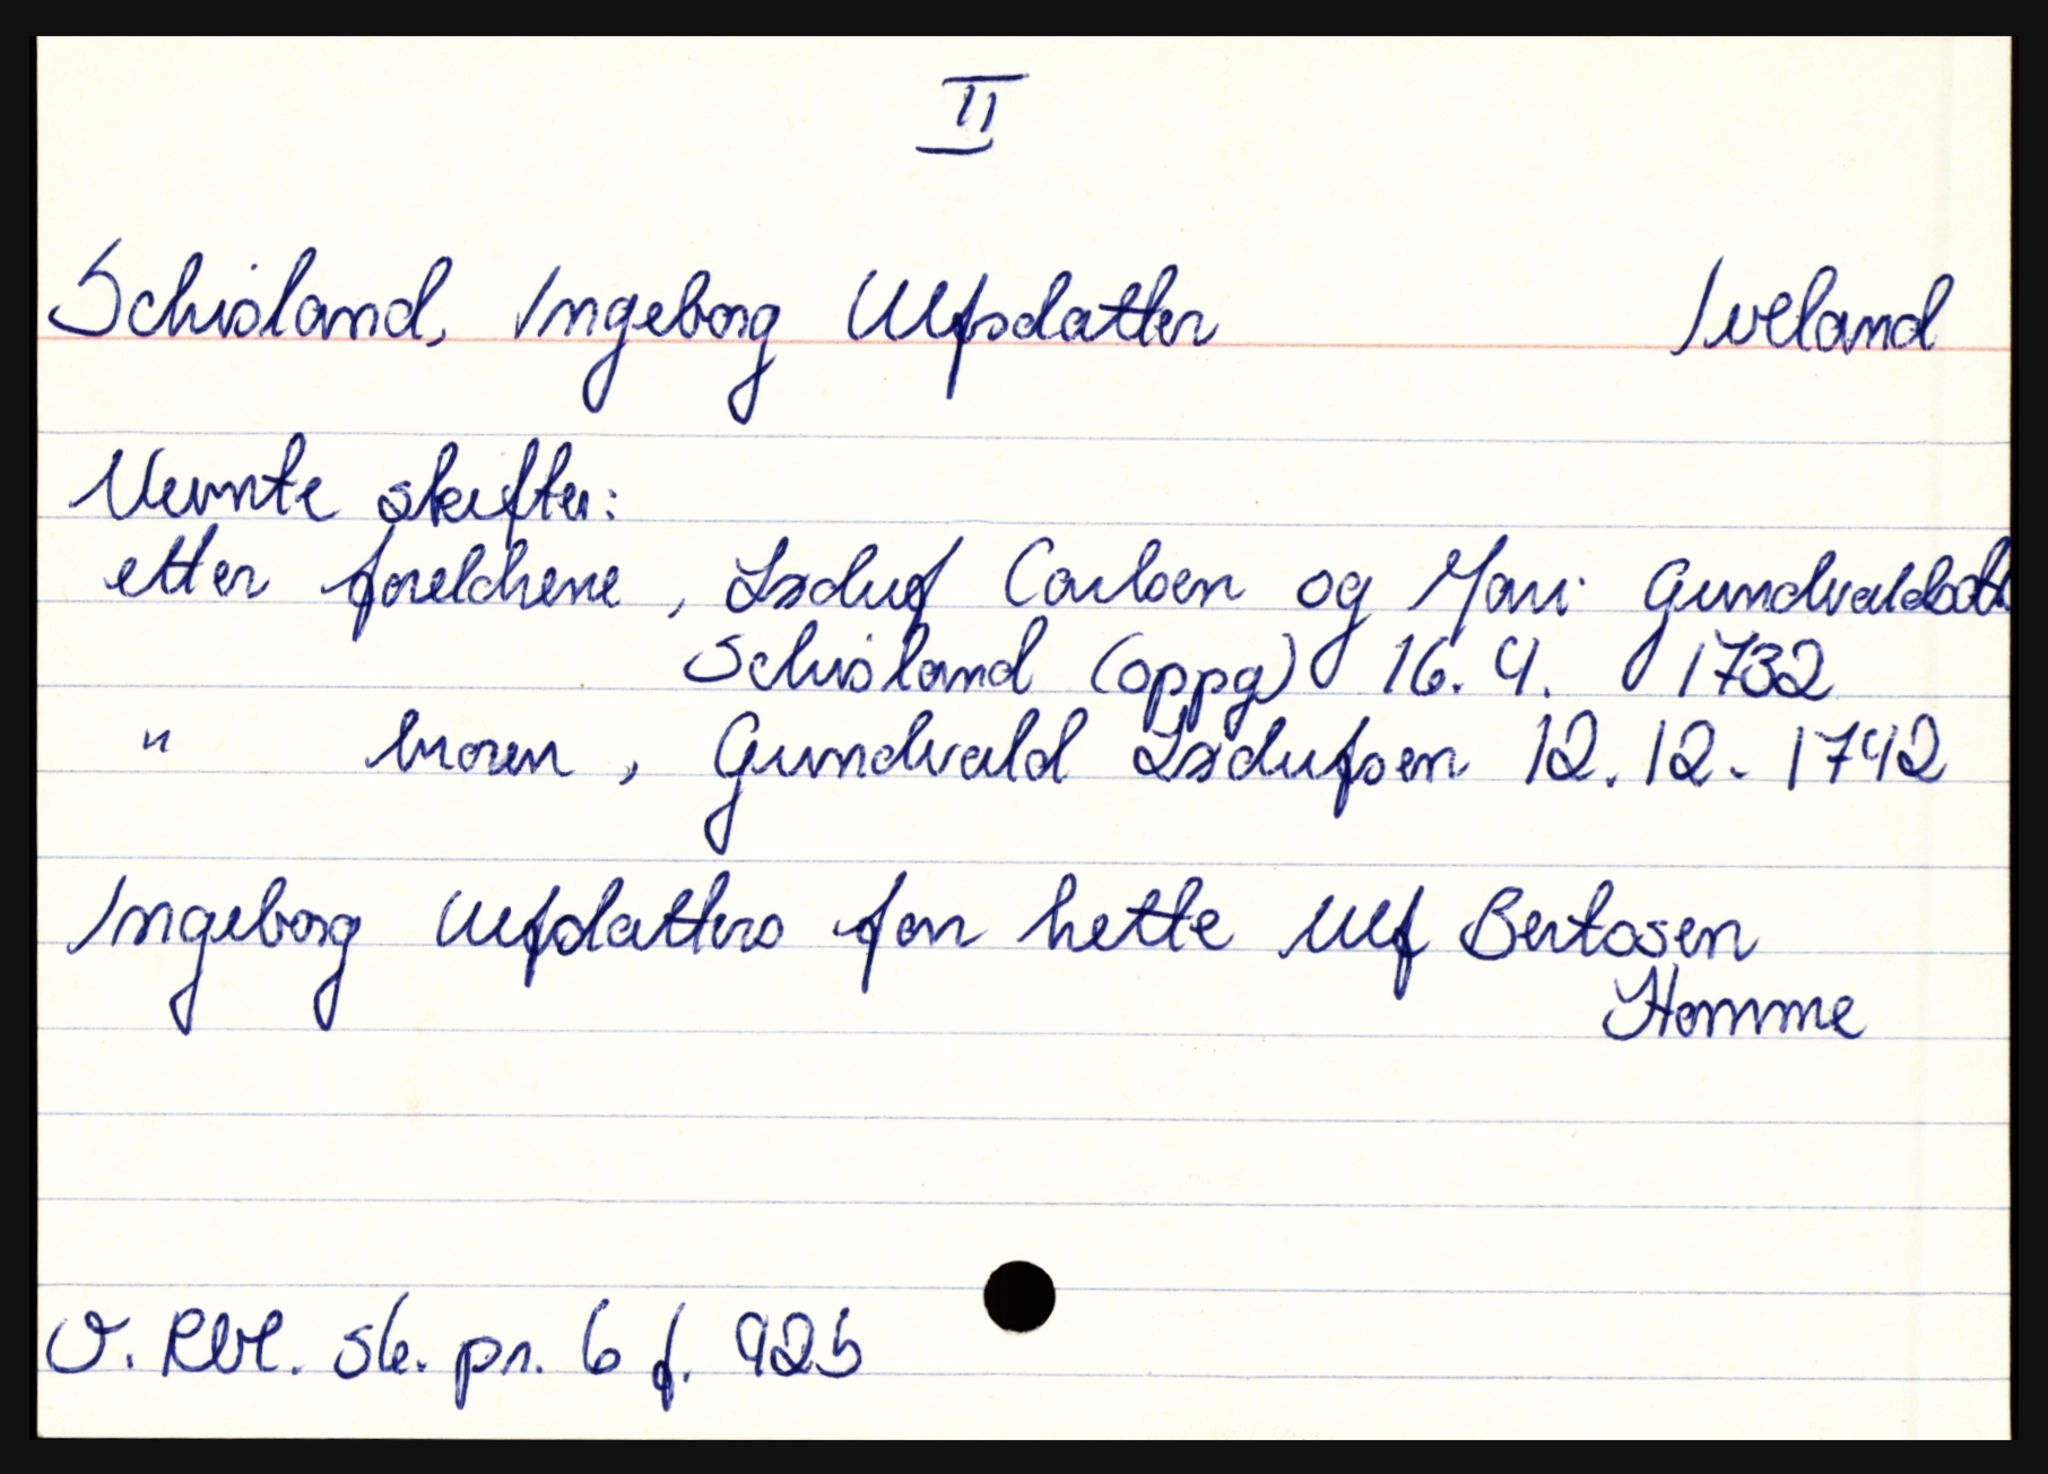 II
Schisland, Ingeborg Ulfsdatter Iveland
Nevnte skifter:
etter foreldrene, Lxduf Carlsen og Mari Gundvaldsdtr.
Schisland (oppg) 16. 4. 1732
" broren, Gundvald Lxdufsen 12. 12. 1742
Ingeborg Ulfsdatters far hette Ulf Bentosen
Homme
O. Rbl. sk. pr. 6 f. 925